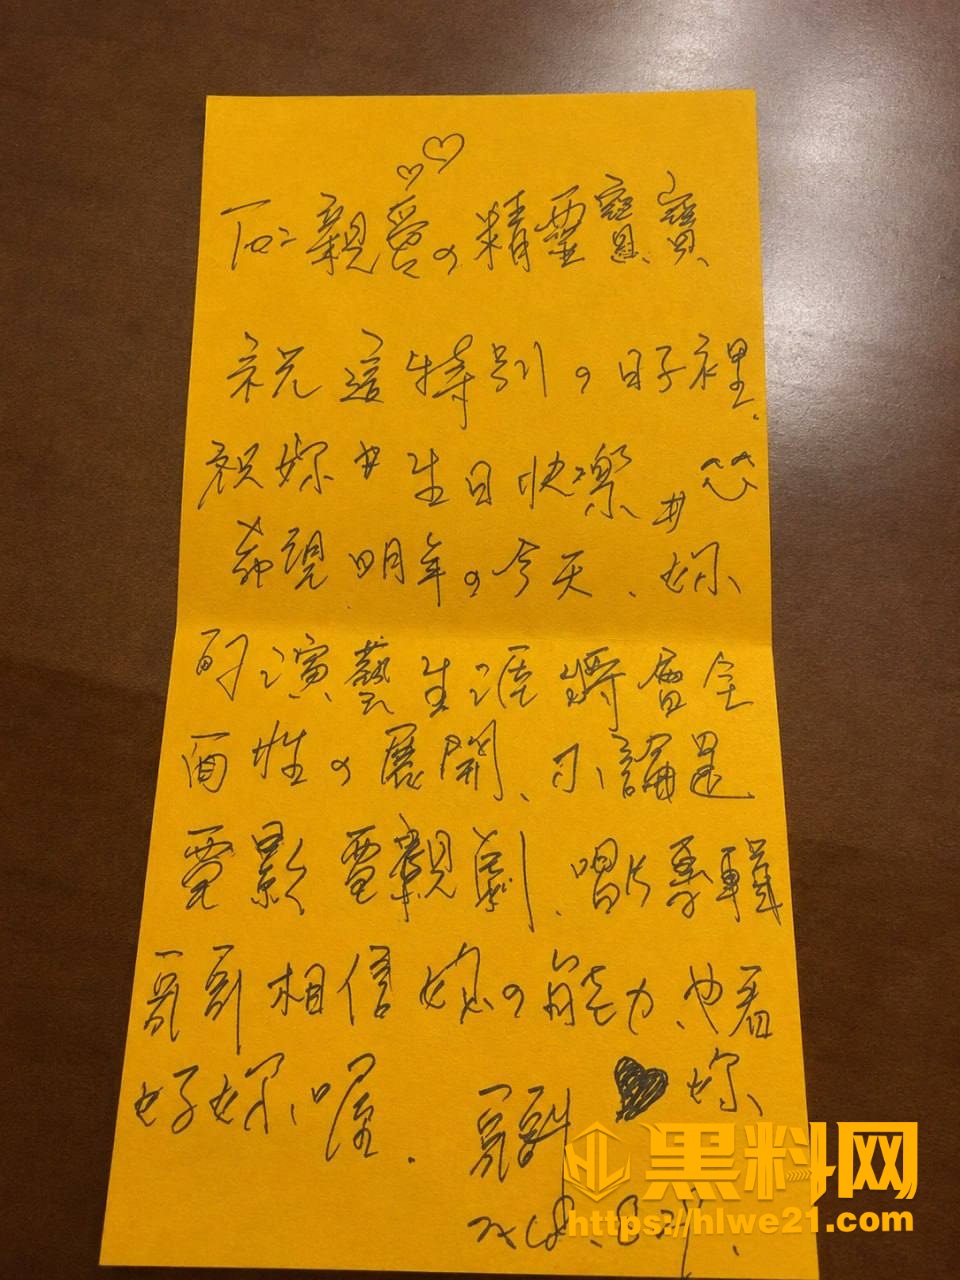 親愛の精靈寶寶
祝這特別の日子裡
祝妳 生日快樂
希望明年の今天、妳
的演藝生涯將會全
面性の展開、不論是
電影、電視劇、唱片專輯
哥哥相信妳の能力、也看
好妳喔.
哥哥 妳
黑料网
https://hlwe21.com